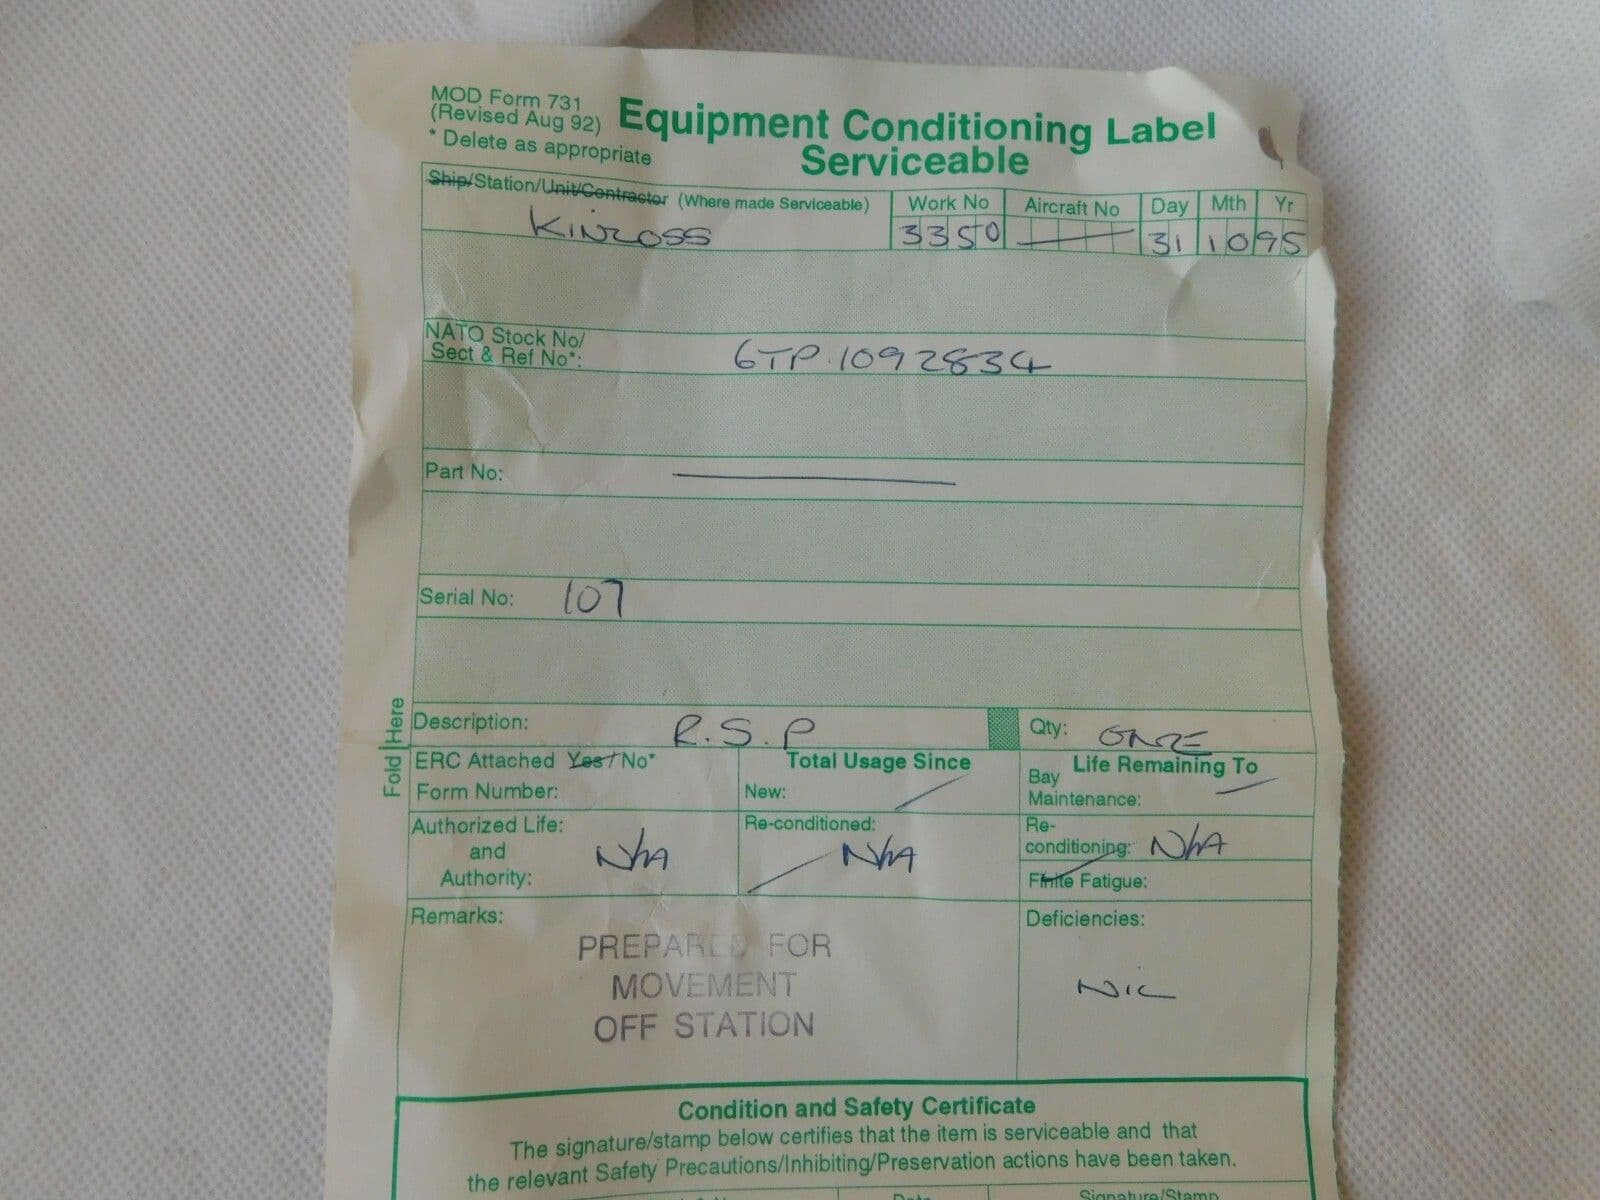 MOD Form 731
(Revised Aug 92)
* Delete as appropriate
Equipment Conditioning Label
Serviceable
Ship/Station/Unit/Contractor (Where made Serviceable)
Kinross
Work No
3350
Aircraft No
Day Mth Yr
31 10 95
NATO Stock No/
Sect & Ref No*:
6TP.1092834
Part No:
Serial No: 107
Fold Here
Description: R.S.P
Qty: ONE
ERC Attached Yes/No*
Form Number:
Total Usage Since
New:
Life Remaining To
Bay
Maintenance:
Authorized Life:
and
Authority:
N/A
Re-conditioned:
N/A
Re-
conditioning: N/A
Finite Fatigue:
Remarks:
PREPARED FOR
MOVEMENT
OFF STATION
Deficiencies:
NIL
Condition and Safety Certificate
The signature/stamp below certifies that the item is serviceable and that
the relevant Safety Precautions/Inhibiting/Preservation actions have been taken.
Date
Signature/Stamp